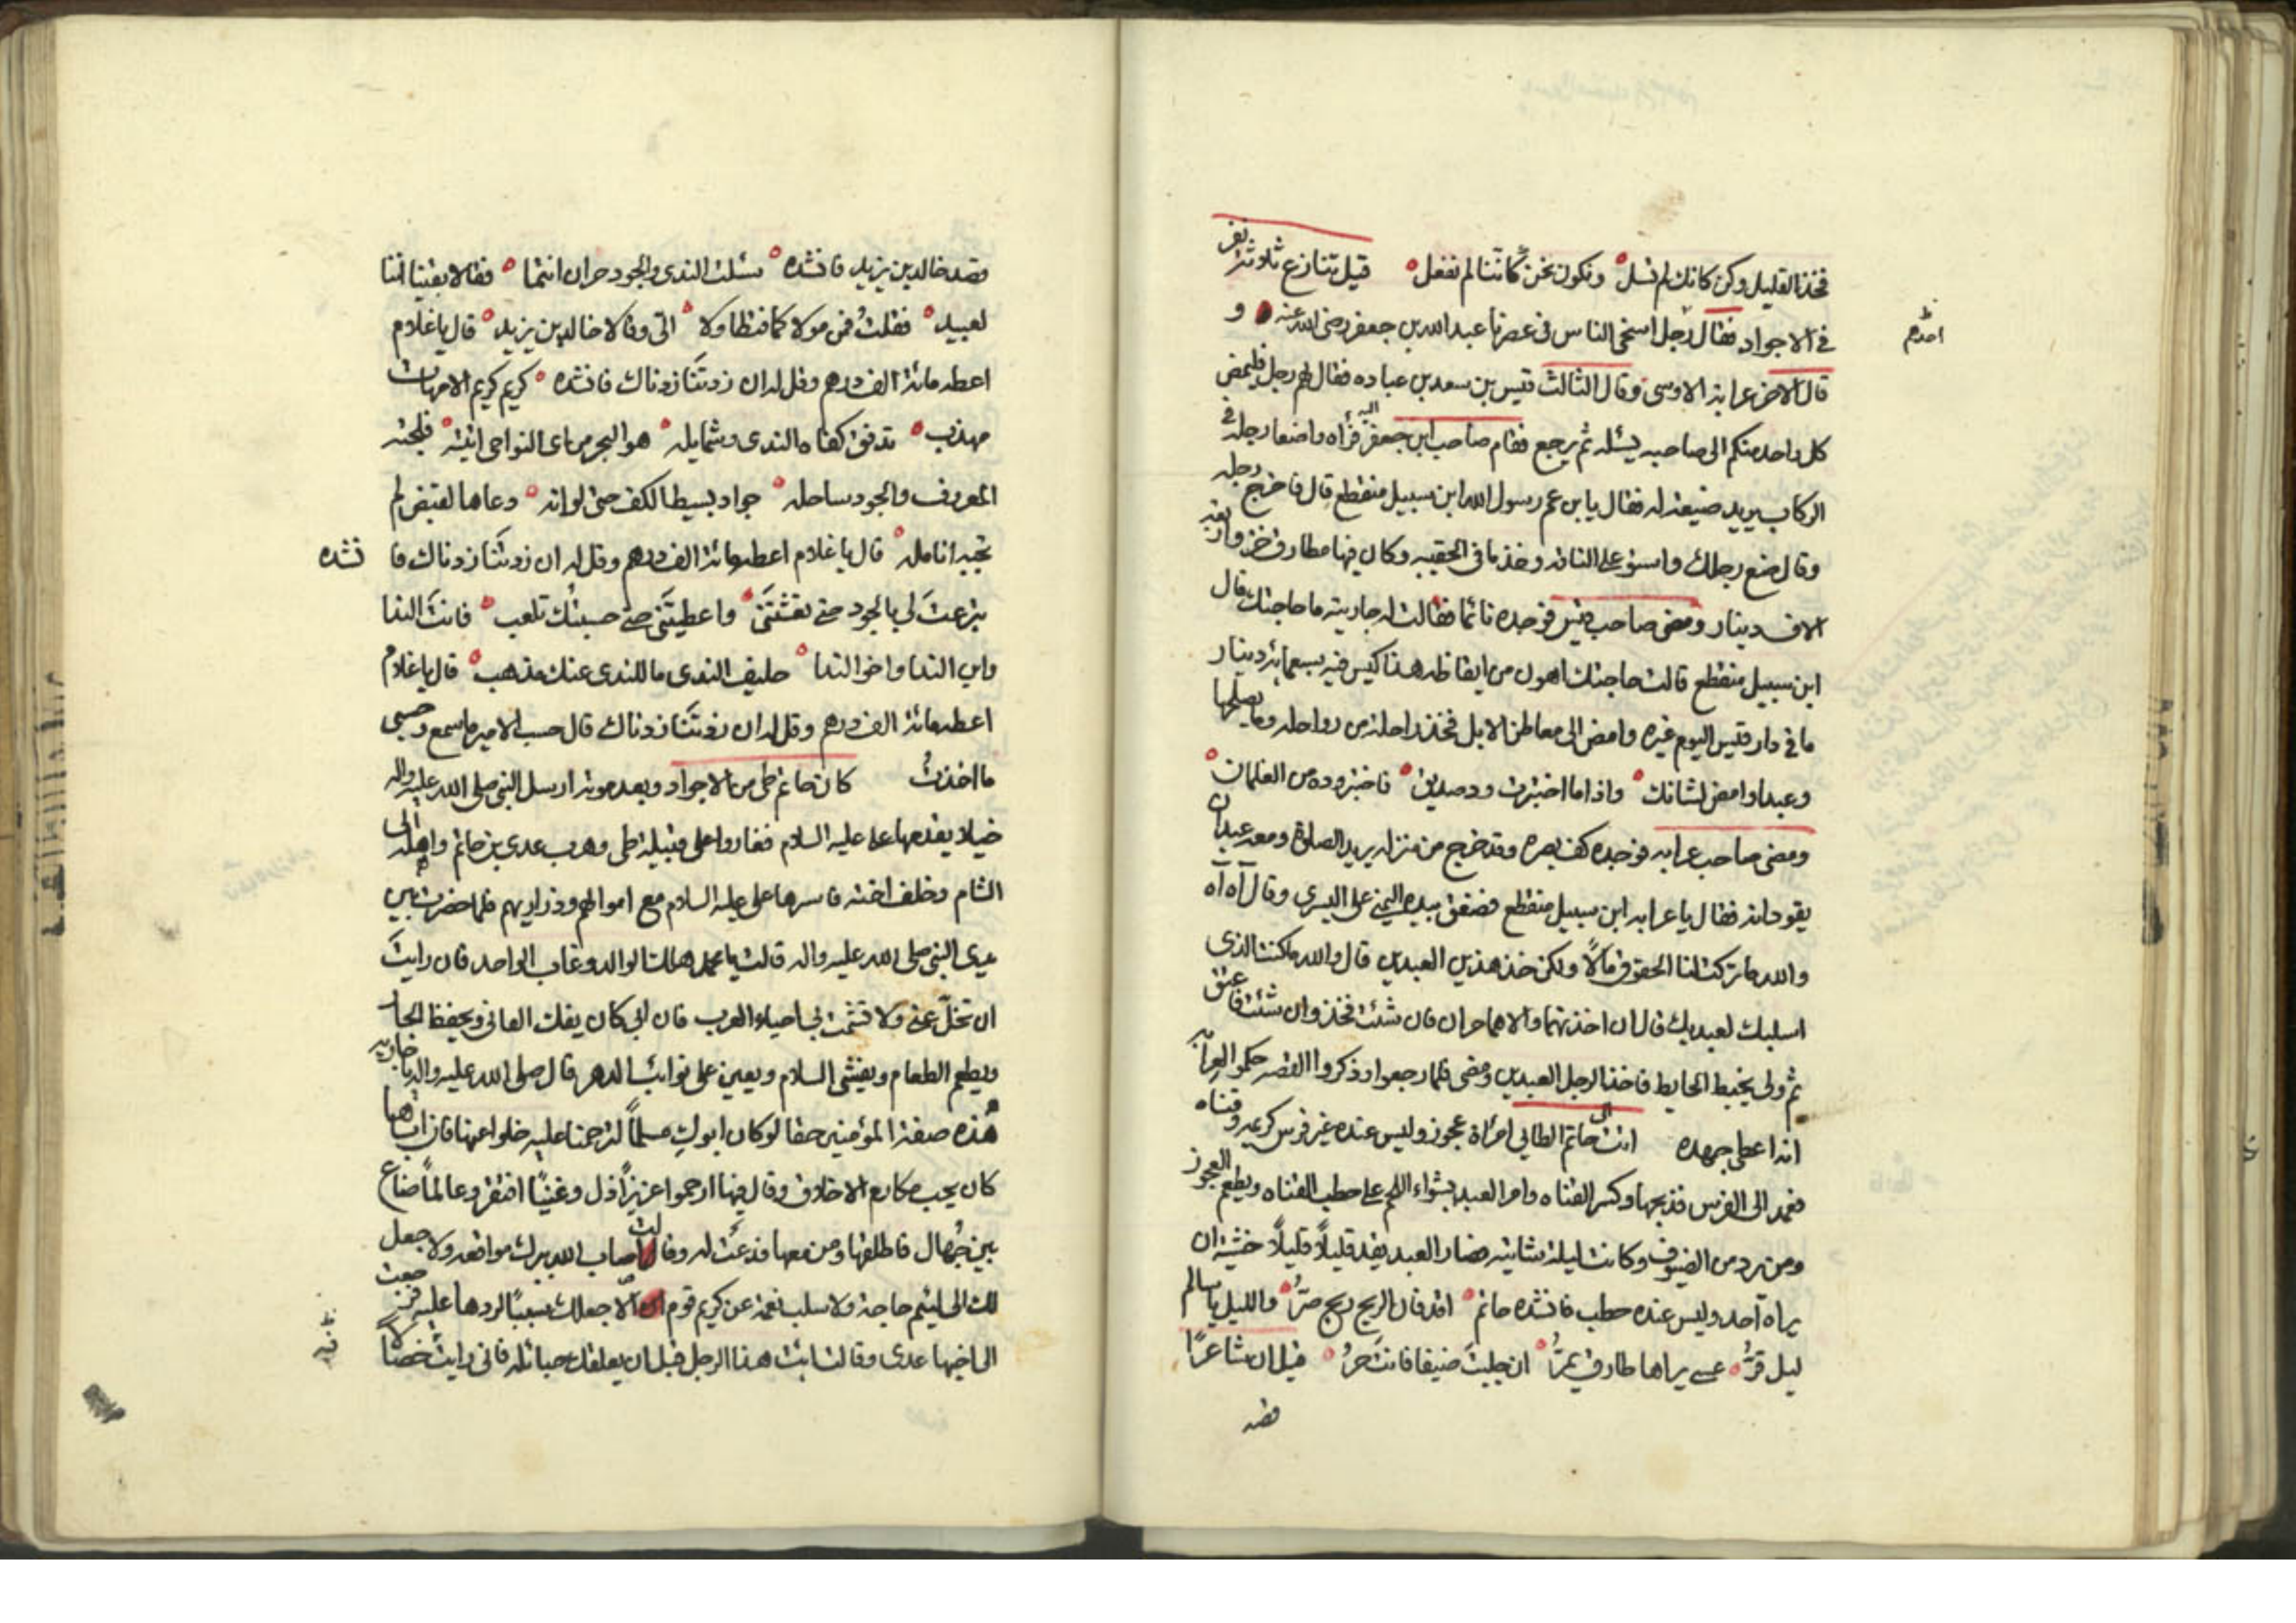 فخذ القليل وكن كانك لم تسل ونكون نحن كاننا لم نفعل قيل تنازع ثلاثة نفر
في الاجواد فقال رجل اسخى الناس في عصرنا عبد الله بن جعفر رضى الله عنه و
احدهم
قال الاخر عرابة الاوسى وقال الثالث قيس بن سعد بن عباده فقال لهم رجل فليمض
كل واحد منكم الى صاحبه يسئله ثم يرجع فقام صاحب ابن جعفر اليه فرأه واضعا رجله في
الركاب يريد ضيعة له فقال يابن عم رسول الله ابن سبيل منقطع قال فاخرج رجله
وقال ضع رجلك واستو على الناقه وخذ ما في الحقيبه وكان فيها مطارف خز واربعة
الاف دينار ومضى صاحب قيس فوجده نائما فقالت له جاريته ما حاجتك قال
ابن سبيل منقطع قالت حاجتك اهون من ايقاظه هذا كيس فيه سبعمائة دينار
ما في دار قيس اليوم غيره وامض الى معاطن الابل فخذ راحلة من رواحله وما يصلحها
وعبدا وامض لشانك واذا ما اختبرت ود صديق فاختبر وده من الغلمان
ومضى صاحب عرابه فوجده كف بصره وقد خرج من منزله يريد الصلوة ومعه عبدان
يقودانه فقال يا عرابه ابن سبيل منقطع فصفق بيده اليمنى على اليسرى وقال آه آه
والله ما تركت لنا الحقوق مالاً ولكن خذ هذين العبدين قال والله ما كنت الذى
اسلبك لعبديك قال ان اخذتهما والا هما حران فان شئت فخذ وان شئت فاعتق
ثم ولى يخبط الحايط فاخذ الرجل العبدين ومضى فلما رجعوا وذكروا القصه حكموا لعرابه
انه اعطى جهده اتت الى حاتم الطائي امرأة عجوز وليس عنده غير فرس كريمه وقناه
فعمد الى الفرس فذبحها وكسر القناه وامر العبد بشواء اللحم على حطب القناه ويطعم العجوز
ومن يرد من الضيوف وكانت ليلة شاتيه فصار العبد يقد قليلاً قليلاً خشية ان
يراه احد وليس عنده حطب فانشده حاتم اوقد فان الريح ريح صرُّ والليل يا سالم
ليل قرُّ عسى يراها طارق يمرُّ ان جلبتَ ضيفا فانت حرُّ قيل ان شاعرًا
قصد
قصد خالد بن يزيد فانشده سئلت الندى والجود حران انتما فقالا يقينا اننا
لعبيد فقلتُ فمن مولا كما فتطاولا الىّ وقالا خالد بن يزيد قال يا غلام
اعطه مائة الف درهم وقل له ان زدتنَا زدناك فانشده كريم كريم الامهات
مهذب تدفق كفاه الندى وشمايله هو البحر من اى النواحى اتيته فلجته
المعروف والجود ساحله جواد بسيط الكف حتى لو انه دعاها لقبض لم
تجبه انامله قال يا غلام اعطه مائة الف درهم وقل له ان زدتنَا زدناك فا نشده
تبرعتَ لى بالجود حتى نعشتَنى واعطيتَنى حتى حسبتُك تلعب فانتَ الندا
وابن الندا واخو الندا حليف الندى ما للندى عنك مذهب قال يا غلام
اعطه مائة الف درهم وقل له ان زدتنَا زدناك قال حسب الامير ما سمع وحسبى
ما اخذتُ كان حاتم طى من الاجواد وبعد موته ارسل النبى صلى الله عليه واله
خيلا يقدمها على عليه السلام فغاروا على قبيلة طى وهرب عدى بن حاتم واهله الى
الشام وخلف اخته فاسرها على عليه السلام مع اموالهم وذراريهم فلما حضرت بين
يدى النبى صلى الله عليه واله قالت يا محمد هلك الوالد وغاب الواحد فان رايتَ
ان تخلّ عنى ولا تشمت بى احياء العرب فان ابى كان يفك العانى ويحفظ الجار
ويطعم الطعام ويفشى السلام ويعين على نوائب الدهر قال صلى الله عليه واله يا جاريه
هُذه صفة المؤمنين حقا لو كان ابوكِ مسلماً لترحمنا عليه خلوا عنها فان اباها
كان يحب مكارم الاخلاق وقال فيها ارحموا عزيزاً ذل وغنيًّا افتقر وعالماً ضاع
بين جُهال فاطلقها ومن معها فدعَت له وقالت اصاب الله ببرك مواقعه ولا جعل
لك الى لئيم حاجة ولا سلب نعمة عن كريم قوم الا جعلك سببًا لردها عليه فرجعت
الى اخيها عدى وقالت ائت هذا الرجل قبل ان يعلقك حبائله فانى رايت خصالاً